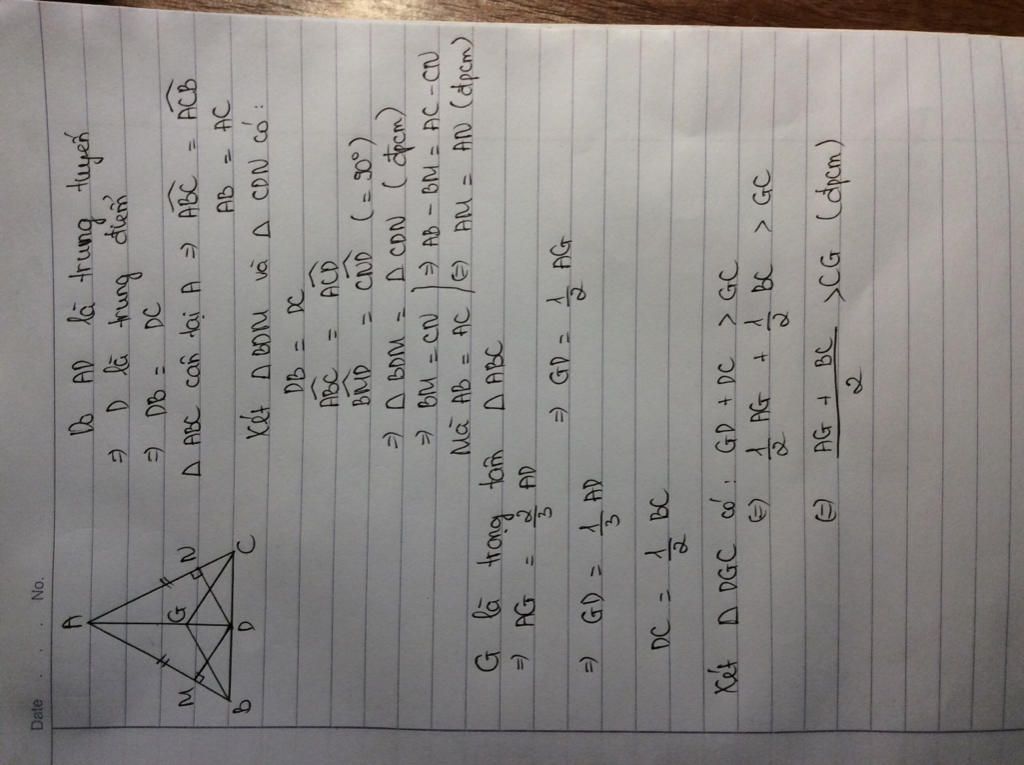 Date . . . No.
A
M
N
G
B
D
C
Do AD là trung tuyến
⇒ D là trung điểm
⇒ DB = DC
Δ ABC cân tại A ⇒ ABC = ACB
AB = AC
Xét Δ BDM và Δ CDN có:
DB = DC
ABC = ACD
BMD = CND (= 90°)
⇒ Δ BDM = Δ CDN (đpcm)
⇒ BM = CN } ⇒ AB - BM = AC - CN
Mà AB = AC } (=) AM = AN (đpcm)
G là trọng tâm Δ ABC
⇒ AG = 2/3 AD
⇒ GD = 1/3 AD ⇒ GD = 1/2 AG
DC = 1/2 BC
Xét Δ DGC có: GD + DC > GC
(=) 1/2 AG + 1/2 BC > GC
(=) AG + BC / 2 > CG (đpcm)